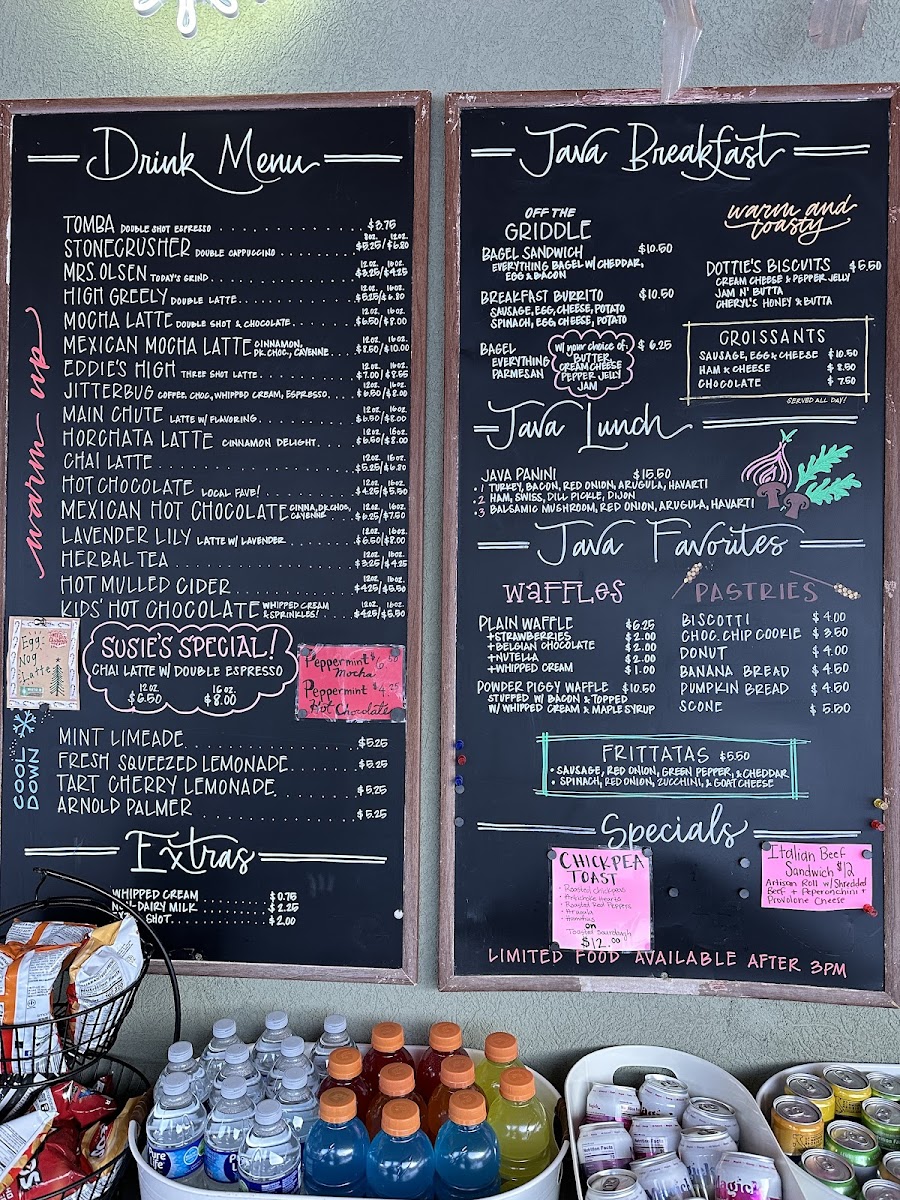 Drink Menu
TOMBA DOUBLE SHOT ESPRESSO $3.75
8oz. 12oz.
STONECRUSHER DOUBLE CAPPUCCINO $5.25/$6.80
12oz. 16oz.
MRS. OLSEN TODAY'S GRIND $3.25/$4.25
12oz. 16oz.
HIGH GREELY DOUBLE LATTE $5.25/$6.80
12oz. 16oz.
MOCHA LATTE DOUBLE SHOT & CHOCOLATE $6.50/$8.00
12oz. 16oz.
MEXICAN MOCHA LATTE CINNAMON, DK. CHOC., CAYENNE $8.50/$10.00
12oz. 16oz.
EDDIE'S HIGH THREE SHOT LATTE $7.00/$8.55
12oz. 16oz.
JITTERBUG COFFEE, CHOC, WHIPPED CREAM, ESPRESSO $6.50/$8.00
12oz. 16oz.
MAIN CHUTE LATTE W/ FLAVORING $6.50/$8.00
12oz. 16oz.
HORCHATA LATTE CINNAMON DELIGHT $6.50/$8.00
12oz. 16oz.
CHAI LATTE $5.25/$6.80
12oz. 16oz.
HOT CHOCOLATE LOCAL FAVE! $4.25/$5.50
12oz. 16oz.
MEXICAN HOT CHOCOLATE CINNA, DK. CHOC, CAYENNE $6.25/$7.50
12oz. 16oz.
LAVENDER LILY LATTE W/ LAVENDER $6.50/$8.00
12oz. 16oz.
HERBAL TEA $3.25/$4.25
12oz. 16oz.
HOT MULLED CIDER $4.25/$5.50
12oz. 16oz.
KIDS' HOT CHOCOLATE WHIPPED CREAM & SPRINKLES! $4.25/$5.50
warm up
Egg-
Nog
Latte
SUSIE'S SPECIAL!
CHAI LATTE W/ DOUBLE ESPRESSO
12oz. 16oz.
$6.50 $8.00
Peppermint $6.50
Mocha
Peppermint $4.25
Hot Chocolate
COOL
DOWN
MINT LIMEADE $5.25
FRESH SQUEEZED LEMONADE $5.25
TART CHERRY LEMONADE $5.25
ARNOLD PALMER $5.25
Extras
WHIPPED CREAM $0.75
DAIRY MILK $2.25
SHOT $2.00
Java Breakfast
OFF THE
GRIDDLE
BAGEL SANDWICH $10.50
EVERYTHING BAGEL W/ CHEDDAR,
EGG & BACON
BREAKFAST BURRITO $10.50
SAUSAGE, EGG, CHEESE, POTATO
SPINACH, EGG, CHEESE, POTATO
BAGEL $6.25
EVERYTHING
PARMESAN
W/ your choice of:
BUTTER
CREAM CHEESE
PEPPER JELLY
JAM
warm and
toasty
DOTTIE'S BISCUITS $5.50
CREAM CHEESE & PEPPER JELLY
JAM N' BUTTA
CHERYL'S HONEY & BUTTA
CROISSANTS
SAUSAGE, EGG & CHEESE $10.50
HAM & CHEESE $8.50
CHOCOLATE $7.50
SERVED ALL DAY!
Java Lunch
JAVA PANINI $15.50
1 TURKEY, BACON, RED ONION, ARUGULA, HAVARTI
2 HAM, SWISS, DILL PICKLE, DIJON
3 BALSAMIC MUSHROOM, RED ONION, ARUGULA, HAVARTI
Java Favorites
WAFFLES
PLAIN WAFFLE $6.25
+STRAWBERRIES $2.00
+BELGIAN CHOCOLATE $2.00
+NUTELLA $2.00
+WHIPPED CREAM $1.00
POWDER PIGGY WAFFLE $10.50
STUFFED W/ BACON & TOPPED
W/ WHIPPED CREAM & MAPLE SYRUP
PASTRIES
BISCOTTI $4.00
CHOC. CHIP COOKIE $3.50
DONUT $4.00
BANANA BREAD $4.50
PUMPKIN BREAD $4.50
SCONE $5.50
FRITTATAS $5.50
• SAUSAGE, RED ONION, GREEN PEPPER, & CHEDDAR
• SPINACH, RED ONION, ZUCCHINI, & GOAT CHEESE
Specials
CHICKPEA
TOAST
• Roasted Chickpeas
• Artichoke Hearts
• Roasted Red Peppers
• Arugula
• Hummus
on
Toasted Sourdough
$12.00
Italian Beef
Sandwich $12
Artisan Roll w/ Shredded
Beef + Peperonchini +
Provolone Cheese
LIMITED FOOD AVAILABLE AFTER 3PM
Pure
Life